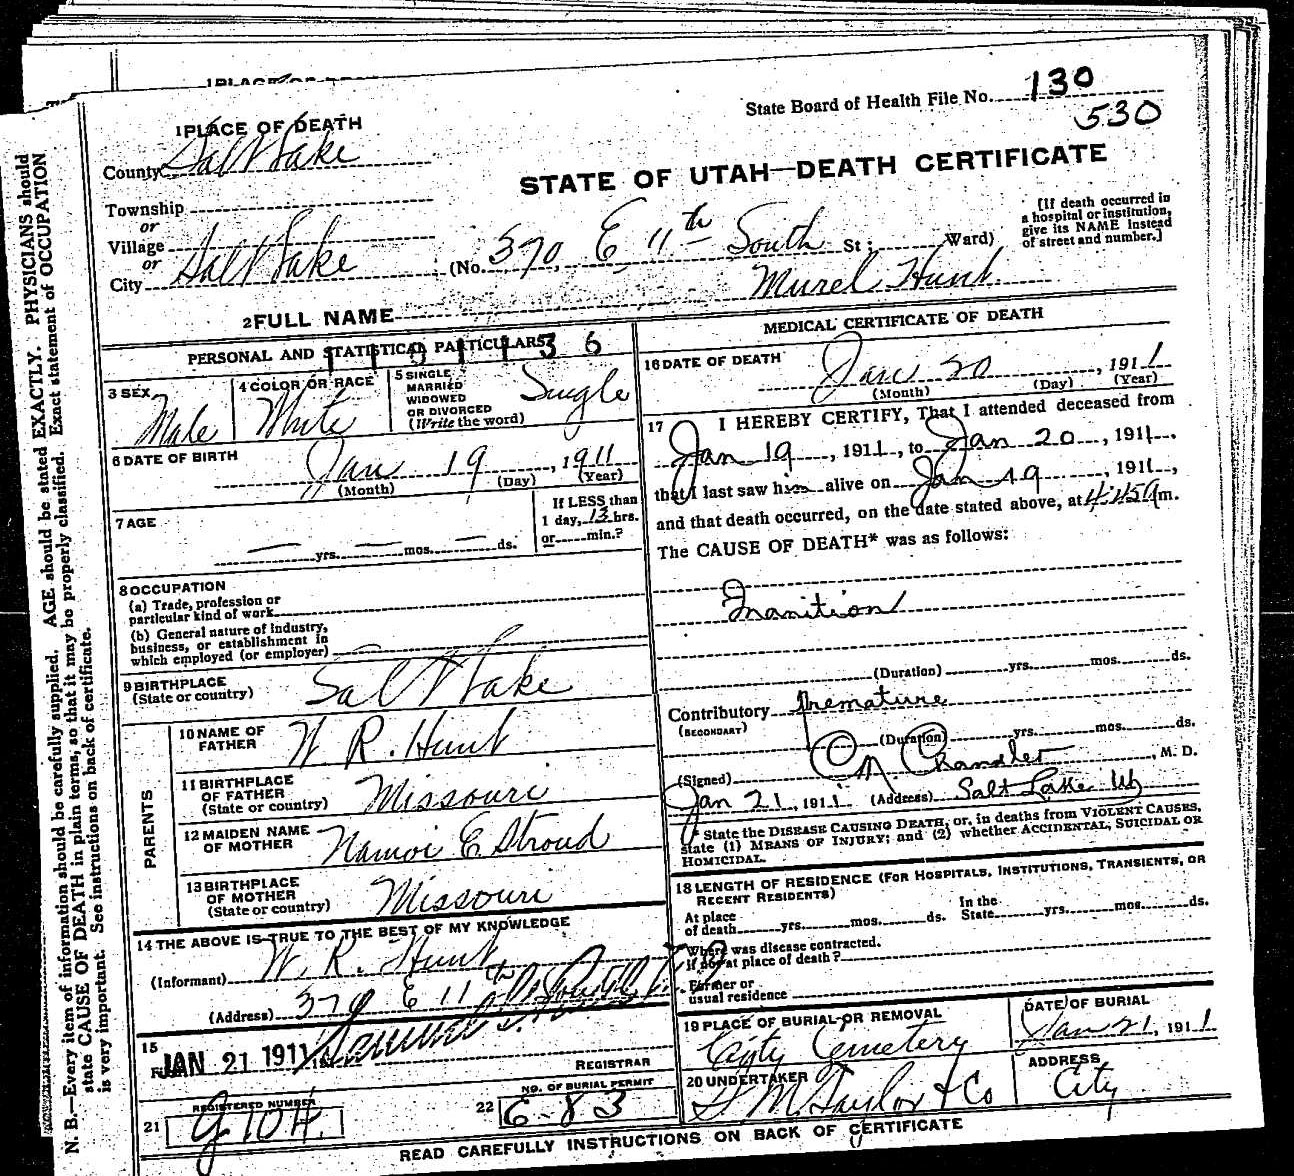 1 PLACE OF DEATH
State Board of Health File No. 130
530
County Salt Lake
STATE OF UTAH—DEATH CERTIFICATE
Township
or
Village
or
City Salt Lake (No. 370, E 11th South St; Ward)
[If death occurred in
a hospital or institution,
give its NAME instead
of street and number.]
2 FULL NAME Murel Hunt
PERSONAL AND STATISTICAL PARTICULARS
3 SEX Male
4 COLOR OR RACE White
5 SINGLE
MARRIED
WIDOWED
OR DIVORCED
(Write the word) Single
6 DATE OF BIRTH Jan 19, 1911
(Month) (Day) (Year)
7 AGE
— yrs. — mos. — ds.
If LESS than
1 day, 13 hrs.
or min.?
8 OCCUPATION
(a) Trade, profession or
particular kind of work
(b) General nature of industry,
business, or establishment in
which employed (or employer)
9 BIRTHPLACE
(State or country) Salt Lake
PARENTS
10 NAME OF
FATHER W R. Hunt
11 BIRTHPLACE
OF FATHER
(State or country) Missouri
12 MAIDEN NAME
OF MOTHER Namoi E. Stroud
13 BIRTHPLACE
OF MOTHER
(State or country) Missouri
14 THE ABOVE IS TRUE TO THE BEST OF MY KNOWLEDGE
(Informant) W. R. Hunt
(Address) 370 E 11th South
15
JAN 21 1911
REGISTRAR
REGISTERED NUMBER
21 G 104.
NO. OF BURIAL PERMIT
22 E-83
MEDICAL CERTIFICATE OF DEATH
16 DATE OF DEATH
Jan 20, 1911
(Month) (Day) (Year)
17 I HEREBY CERTIFY, That I attended deceased from
Jan 19, 1911, to Jan 20, 1911,
that I last saw him alive on Jan 19, 1911,
and that death occurred, on the date stated above, at 4:45 a m.
The CAUSE OF DEATH* was as follows:
Inanition
(Duration) yrs. mos. ds.
Contributory Premature
(SECONDARY)
(Duration) yrs. mos. ds.
(Signed) C M Chandler, M. D.
Jan 21, 1911 (Address) Salt Lake
* State the DISEASE CAUSING DEATH, or, in deaths from VIOLENT CAUSES,
state (1) MEANS OF INJURY; and (2) whether ACCIDENTAL, SUICIDAL OR
HOMICIDAL.
18 LENGTH OF RESIDENCE (FOR HOSPITALS, INSTITUTIONS, TRANSIENTS, OR
RECENT RESIDENTS)
At place
of death yrs. mos. ds.
In the
State yrs. mos. ds.
Where was disease contracted.
if not at place of death?
Former or
usual residence
19 PLACE OF BURIAL OR REMOVAL
City Cemetery
DATE OF BURIAL
Jan 21, 1911
20 UNDERTAKER
S. M. Taylor & Co
ADDRESS
City
READ CAREFULLY INSTRUCTIONS ON BACK OF CERTIFICATE
N. B.—Every item of information should be carefully supplied. AGE should be stated EXACTLY. PHYSICIANS should
state CAUSE OF DEATH in plain terms, so that it may be properly classified. Exact statement of OCCUPATION
is very important. See instructions on back of certificate.